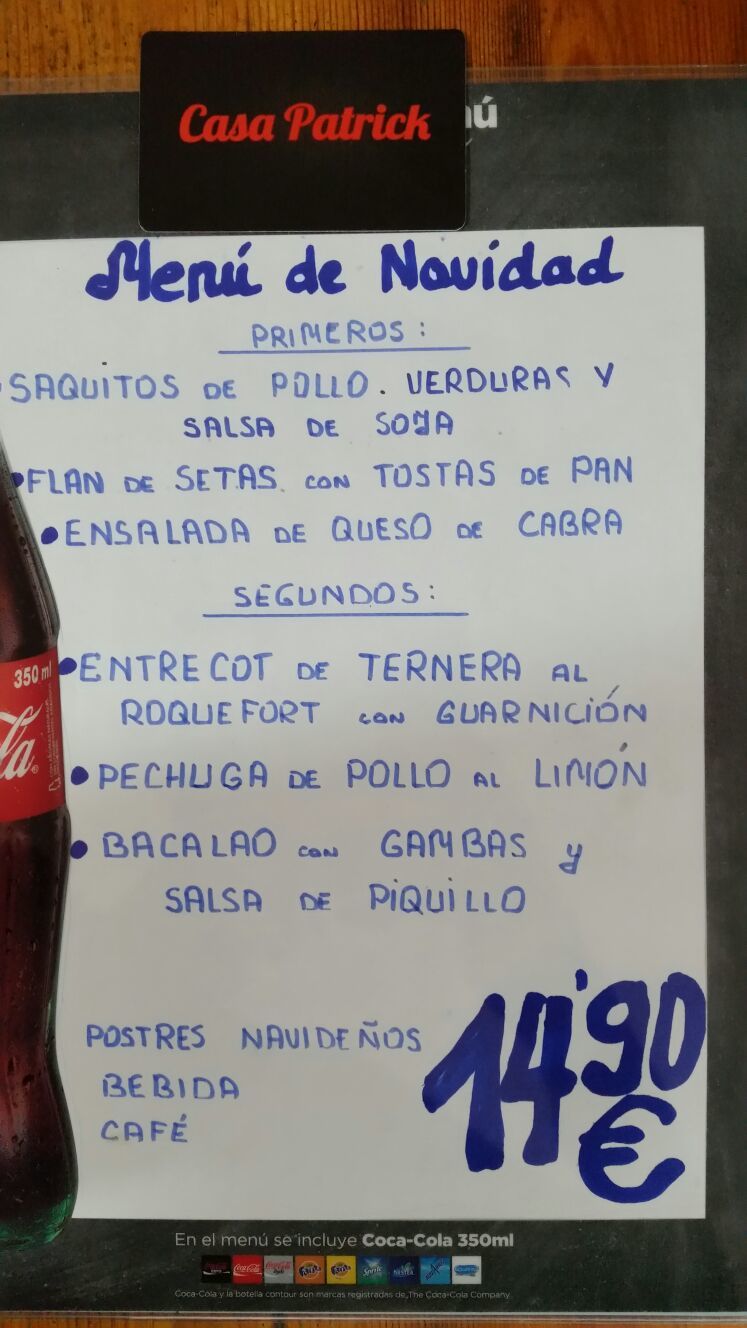 Casa Patrick
ú
Menú de Navidad
PRIMEROS:
• SAQUITOS DE POLLO. VERDURAS Y
SALSA DE SOJA
• FLAN DE SETAS CON TOSTAS DE PAN
• ENSALADA DE QUESO DE CABRA
SEGUNDOS:
• ENTRECOT DE TERNERA AL
ROQUEFORT CON GUARNICIÓN
• PECHUGA DE POLLO AL LIMÓN
• BACALAO CON GAMBAS y
SALSA DE PIQUILLO
POSTRES NAVIDEÑOS
BEBIDA
CAFÉ
14'90
€
350 ml
la
En el menú se incluye Coca-Cola 350ml
Coca-Cola y la botella contour son marcas registradas de The Coca-Cola Company